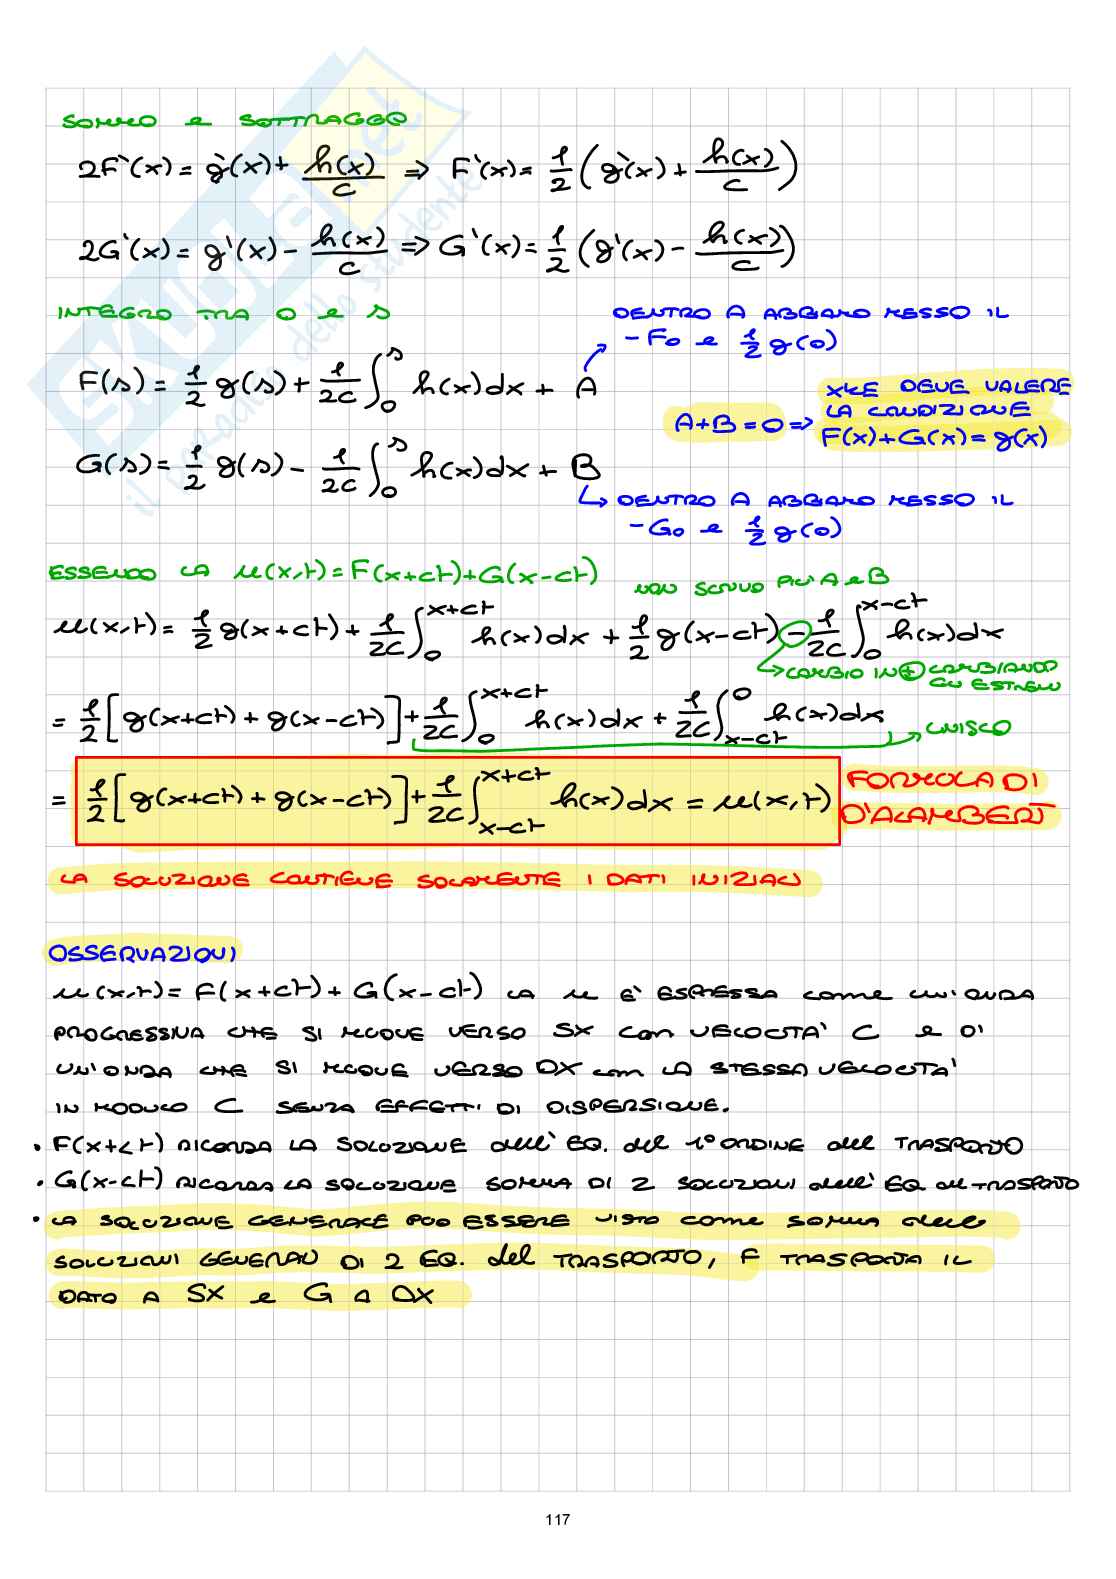 SOMMO e SOTTRAGGO
2F'(x) = g'(x) + h(x)/c ⇒ F'(x) = 1/2 (g'(x) + h(x)/c)
2G'(x) = g'(x) - h(x)/c ⇒ G'(x) = 1/2 (g'(x) - h(x)/c)
INTEGRO TRA 0 e s
DENTRO A ABBIAMO MESSO IL
- F0 e 1/2 g(0)
F(s) = 1/2 g(s) + 1/2c ∫_0^s h(x)dx + A
A+B = 0 ⇒
XKE DEVE VALERE
LA CONDIZIONE
F(x)+G(x) = g(x)
G(s) = 1/2 g(s) - 1/2c ∫_0^s h(x)dx + B
DENTRO A ABBIAMO MESSO IL
- G0 e 1/2 g(0)
ESSENDO LA u(x,t) = F(x+ct)+G(x-ct)
NON SCRIVO PIU' A e B
u(x,t) = 1/2 g(x+ct) + 1/2c ∫_0^{x+ct} h(x)dx + 1/2 g(x-ct) - 1/2c ∫_0^{x-ct} h(x)dx
CAMBIO IN + CAMBIANDO
GLI ESTREMI
= 1/2 [g(x+ct) + g(x-ct)] + 1/2c ∫_0^{x+ct} h(x)dx + 1/2c ∫_{x-ct}^0 h(x)dx
UNISCO
= 1/2 [g(x+ct) + g(x-ct)] + 1/2c ∫_{x-ct}^{x+ct} h(x)dx = u(x,t)
FORMULA DI
D'ALAMBERT
LA SOLUZIONE CONTIENE SOLAMENTE I DATI INIZIALI
OSSERVAZIONI
u(x,t) = F(x+ct) + G(x-ct) LA u E' ESPRESSA come UN'ONDA
PROGRESSIVA CHE SI MUOVE VERSO SX con VELOCITA' C e DI
UN'ONDA CHE SI MUOVE VERSO DX con LA STESSA VELOCITA'
IN MODULO C SENZA EFFETTI DI DISPERSIONE.
• F(x+ct) RICORDA LA SOLUZIONE dell' EQ. del 1° ORDINE del TRASPORTO
• G(x-ct) RICORDA LA SOLUZIONE SOMMA DI 2 SOLUZIONI dell' EQ del TRASPORTO
• LA SOLUZIONE GENERALE PUO ESSERE VISTO come SOMMA delle
SOLUZIONI GENERALI DI 2 EQ. del TRASPORTO, F TRASPORTA IL
DATO A SX e G A DX
117
SKUOLA.net
il paradiso dello studente